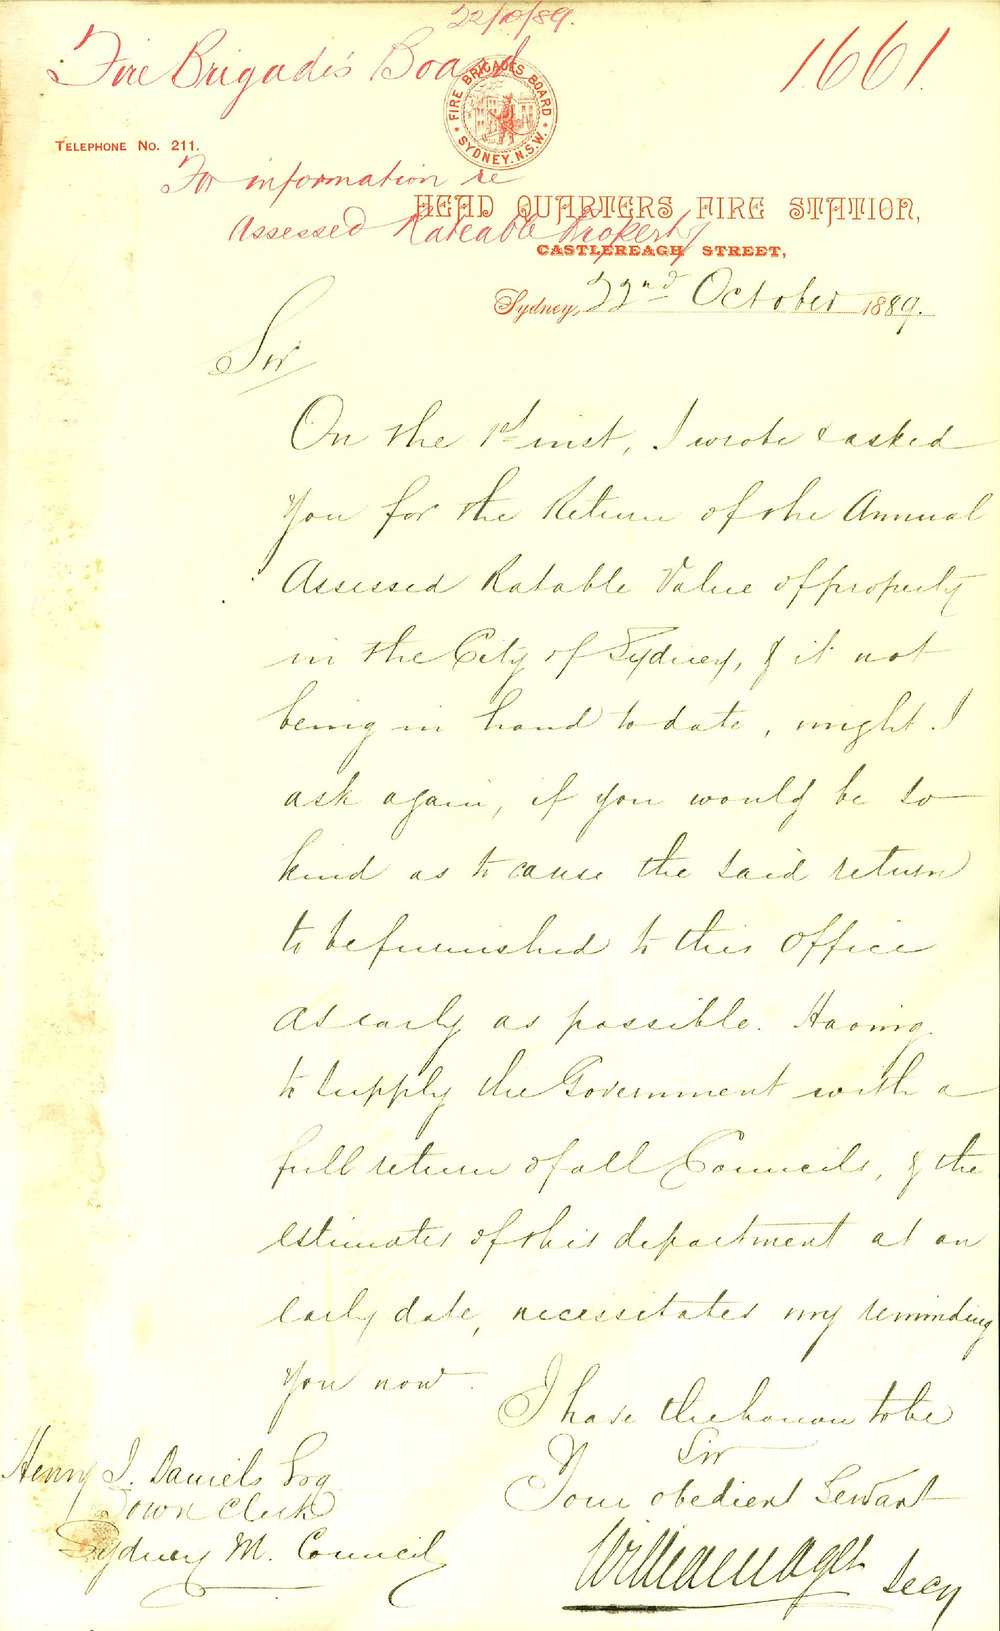 22/10/89.
Fire Brigades Board
1661.
FIRE BRIGADES BOARD
SYDNEY. N.S.W.
TELEPHONE No. 211.
For information re
HEAD QUARTERS FIRE STATION,
Assessed Rateable Property
CASTLEREAGH STREET,
Sydney, 22nd October 1889.
Sir
On the 1st inst, I wrote & asked
you for the Return of the Annual
Assessed Ratable Value of property
in the City of Sydney, & it not
being in hand to date, might I
ask again, if you would be so
kind as to cause the said return
to be furnished to this office
as early as possible. Having
to supply the Government with a
full return of all Councils, & the
estimates of this department at an
early date, necessitates my reminding
you now.
I have the honour to be
Sir
Your obedient Servant
Henry J. Daniels Esq
Town Clerk
Sydney M. Council
Secy